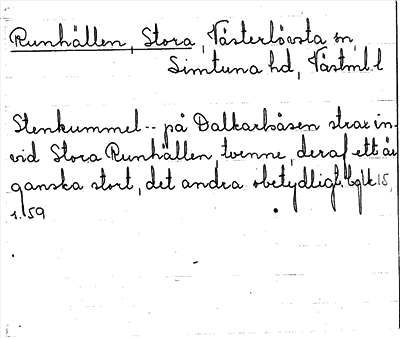 Runhällen, Stora, Västerlövsta sn,
Simtuna hd, Västml. l
Stenkummel -- på Dalkarlsåsen strax in-
vid Stora Runhällen tvenne, deraf ett är
ganska stort, det andra obetydligt.
1.59